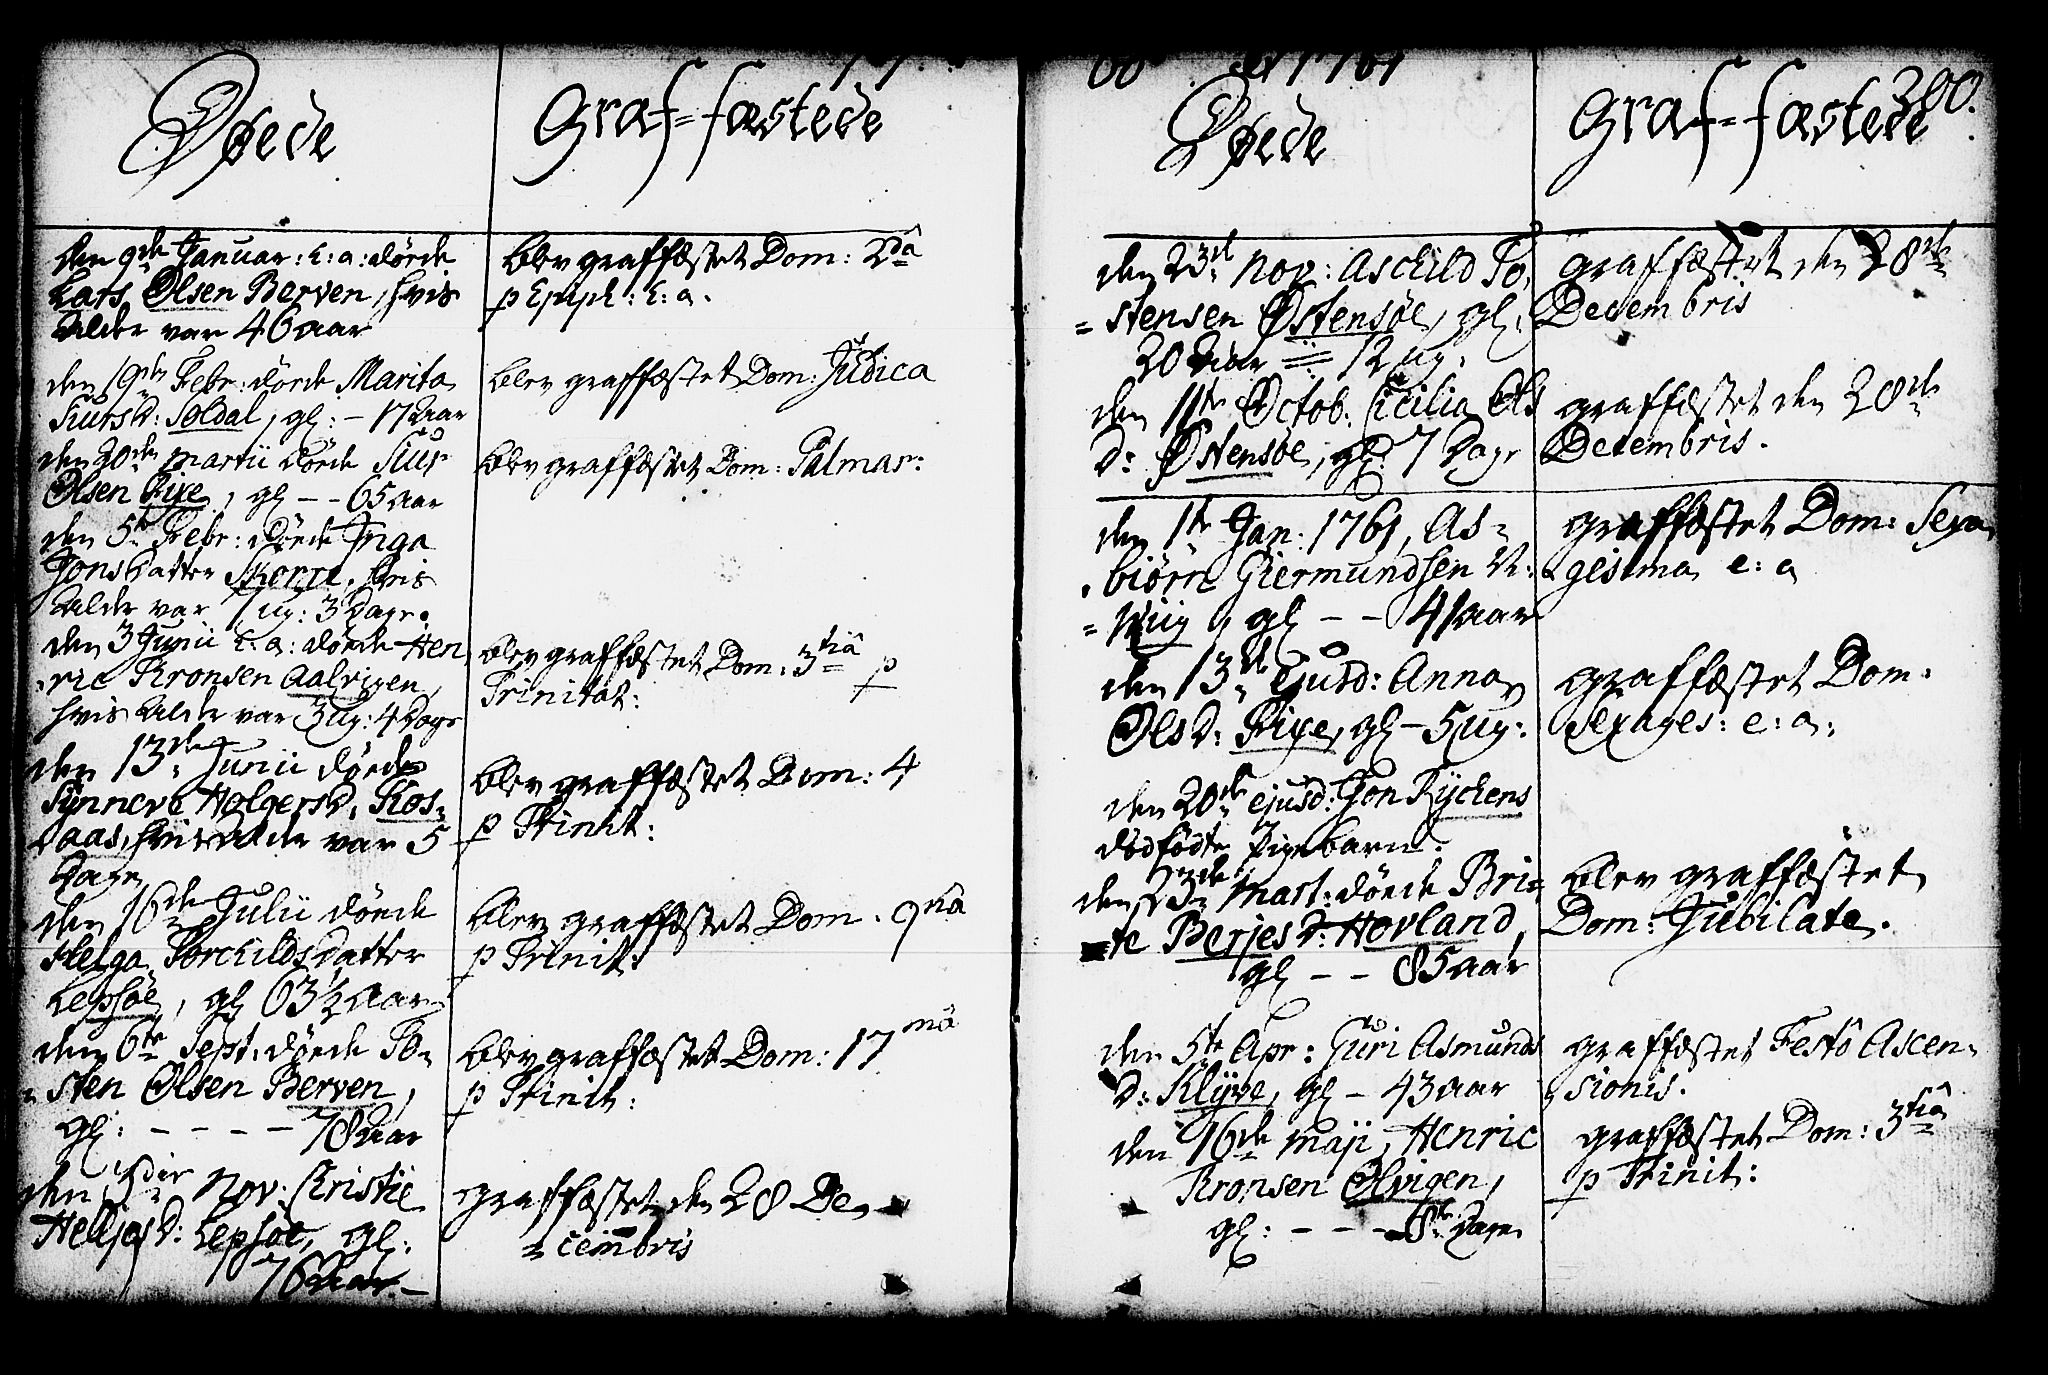 Døede
Graf=fæstede
den 9de Januar: h: a: døede
Lars Olsen Berven, hvis
Alder var 46 aar
blev graffæstet Dom: 2dâ
p Epiph: h: a.
den 19de Febr: døede Marita
Siurs D: Soldal, gl: - 17 Aar
blev graffæstet Dom: Judica
den 20de Martii døede Siur
Olsen Fixe, gl - - 65 aar
blev graffæstet Dom: Palmar:
den 5te Febr: døede Inga
Jonsdatter Skorpe, hvis
Alder var 7 ug: 3 Dage.
den 3 Junii h: a: døede Hen
ric Kronsen Aalvigen,
hvis Alder var 3 Ug: 4 Dage
blev graffæstet Dom: 3tiâ p
Trinitat:
den 13de Junii døede
Synneve Holgersd: Kos-
daas, hvis Alder var 5
Dage
blev graffæstet Dom: 4
p Trinit:
den 16de Julii døede
Helga Torchildsdatter
Lepsøe, gl 63 1/2 Aar
blev graffæstet Dom. 9nâ
p Trinit:
den 6te Sept: døede To-
sten Olsen Berven,
gl: - - - - 78 Aar
blev graffæstet Dom: 17mâ
p Trinit:
den Nov: Kristie
Helljes D: Lepsøe, gl:
76 Aar -
graffæstet den 28 De
= cembris
1761
Døede
Graf=fæstede
300.
den 23de Nov: Aschild To
= stensen Østensøe, gl:
20 Aar 12 ug:
graffæstet den 28de
Decembris
den 11te Octob: Cicilia Ols
D: Østensøe, gl: 7 Dage
graffæstet den 28de
Decembris.
den 1te Jan: 1761, As-
biørn Giermundsen N:
= Wiig, gl - - 41 aar
graffæstet Dom: Sexa
gesima e: a
den 13de Ejusd: Anna
Ols D: Fixe, gl - 5 ug:
graffæstet Dom:
Sexages: e: a:
den 20de ejusd: Jon Rychens
dødfødte Pigebarn.
den 23de Mart: døede Bri=
te Berjes D: Hovland,
gl - - 85 aar
blev graffæstet
Dom: Jubilate.
den 5te Apr: Guri Asmunds
D: Klyve, gl - 43 aar
graffæstet Festô Ascen-
sionis.
den 16de Maji, Henric
Kronsen Olvigen,
gl: - - - 8te Dage
graffæstet Dom: 3tiâ
p Trinit: